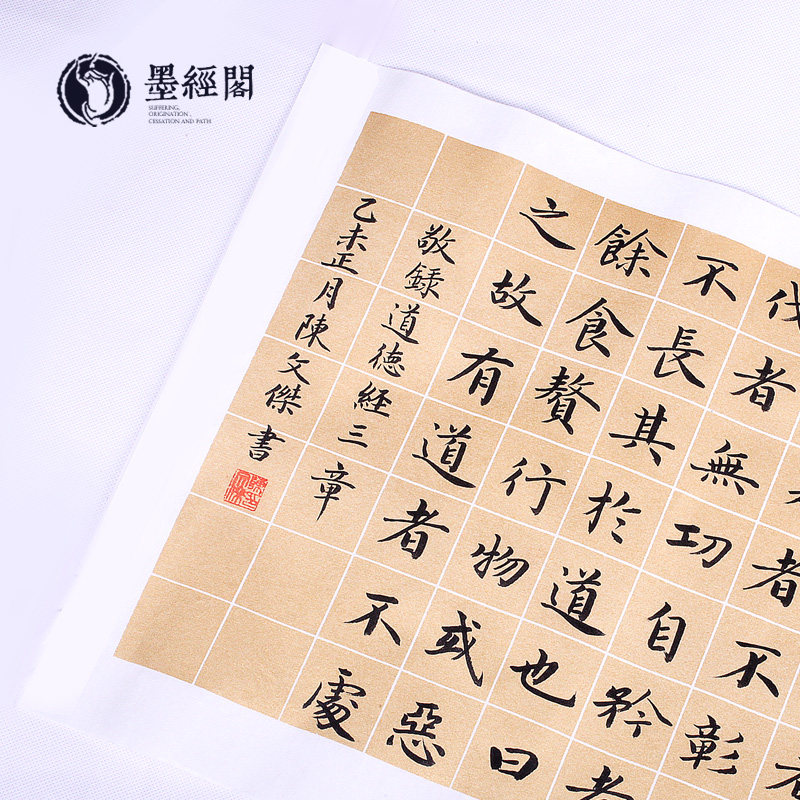 墨經閣
SUFFERING,
ORIGINATION,
CESSATION AND PATH
者不彰
伐者無功自矜者
不長其於道也曰
餘食贅行物或惡
之故有道者不處
敬録道德経三章
乙未正月陳文傑書